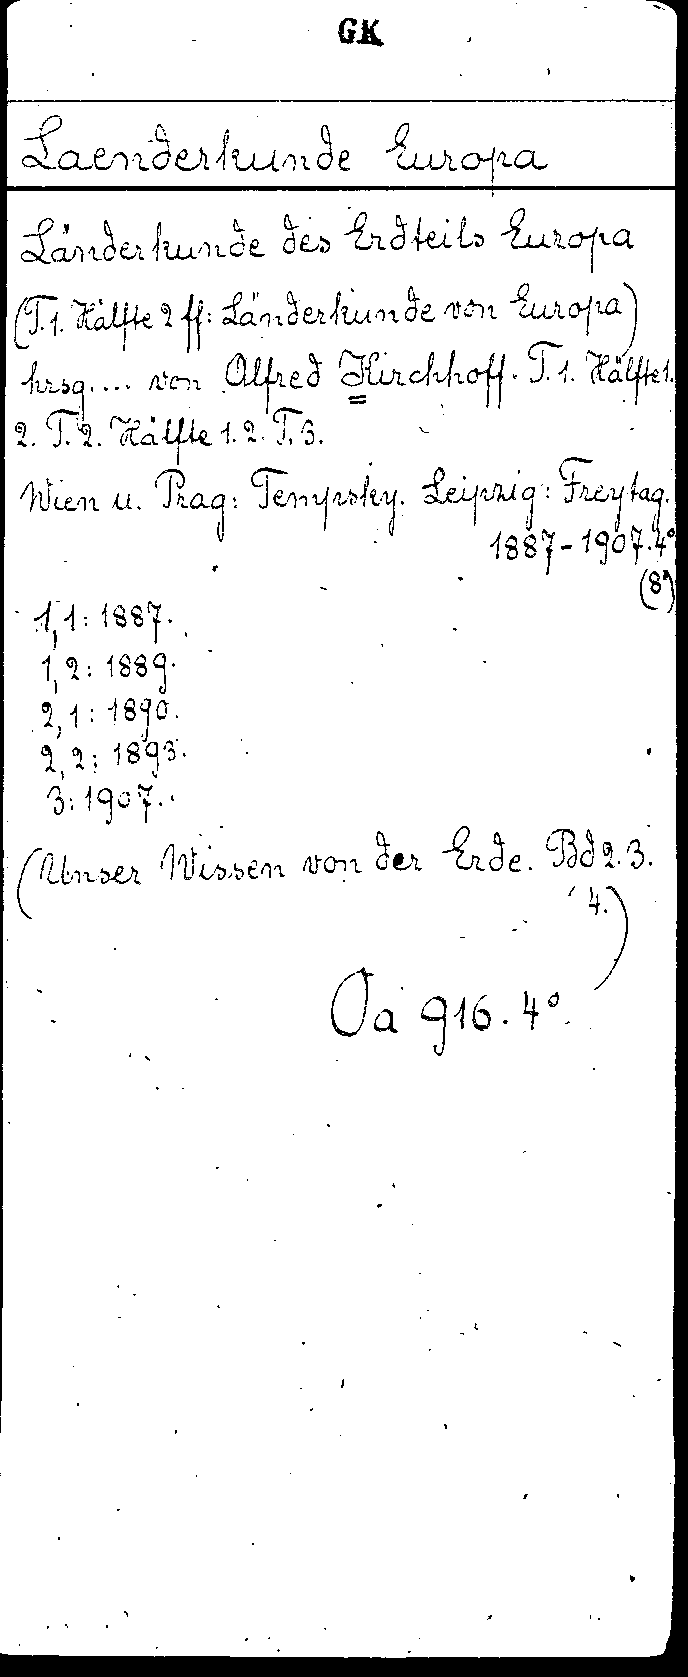 GK
Laenderkunde Europa
Länderkunde des Erdteils Europa
(T. 1. Hälfte 2 ff: Länderkunde von Europa)
hrsg.... von Alfred Kirchhoff. T. 1. Hälfte 1.
2. T. 2. Hälfte 1. 2. T. 3.
Wien u. Prag: Tempsky. Leipzig: Freytag.
1887-1907. 4°
(8°)
1,1: 1887.
1,2: 1889.
2,1: 1890.
2,2: 1893.
3: 1907.
(Unser Wissen von der Erde. Bd 2. 3.
4.)
Oa 916. 4°